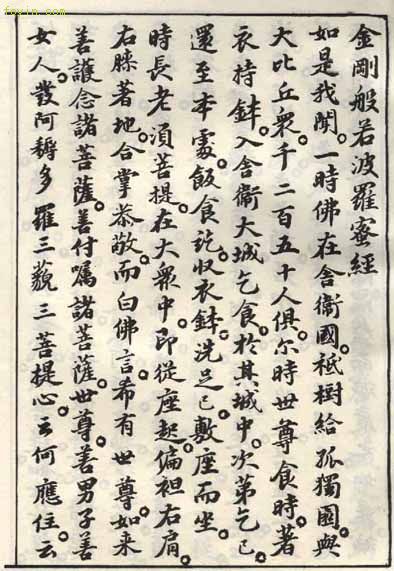 金剛般若波羅蜜經
如是我聞。一時佛在舍衞國祇樹給孤獨園與
大比丘衆。千二百五十人俱。尔時世尊食時。著
衣持鉢。入舍衞大城乞食。於其城中。次第乞已。
還至本處。飯食訖。收衣鉢。洗足已。敷座而坐。
時長老須菩提。在大衆中即從座起。偏袒右肩。
右膝著地。合掌恭敬。而白佛言。希有世尊。如来
善護念諸菩薩。善付囑諸菩薩。世尊。善男子善
女人。發阿耨多羅三藐三菩提心。云何應住。云